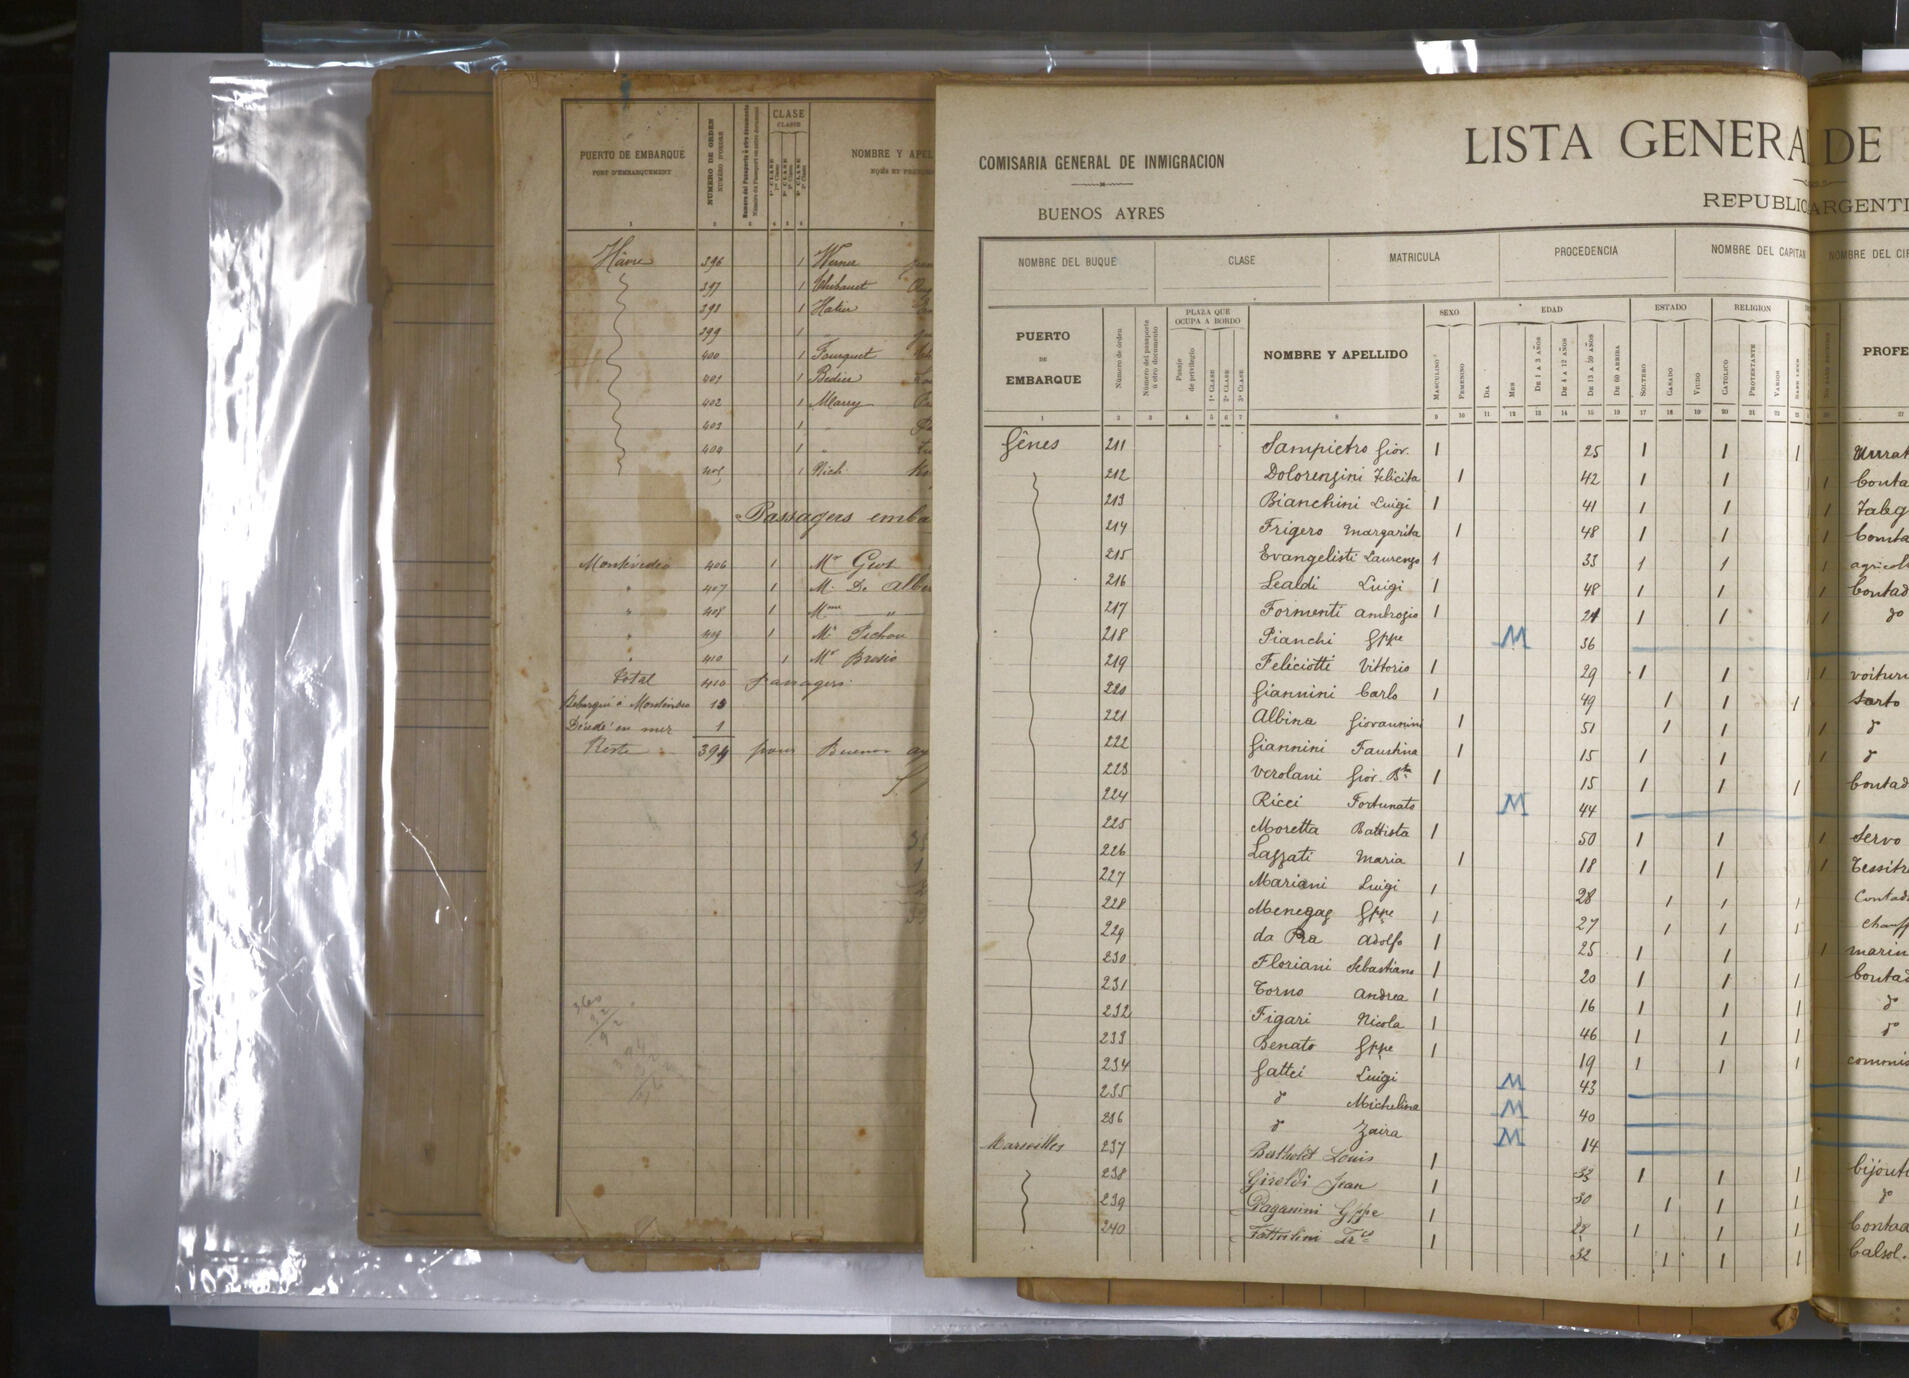 PUERTO DE EMBARQUE
PORT D'EMBARQUEMENT
NUMERO DE ORDEN
NUMÉRO D'ORDRE
CLASE
CLASSE
1ª CLASE
2ª CLASE
3ª CLASE
NOMBRE Y APEL
Hâvre 396 1 Werner
397 1 Thibaut
398 1 Hatier
399 1 "
400 1 Fourquet
401 1 Bedier
402 1 Marry
403 1 "
404 1 "
405 1 Rich
Passagers emba
Montévidéo 406 1 Mr Gros
" 407 1 M. De Albe
" 408 1 Mme "
" 409 1 Mr Pichon
" 410 1 Mr Brosio
Total 410 passagers
Débarqué à Montévideo 13
Décédé en mer 1
Reste 394 pour Buenos ay
COMISARIA GENERAL DE INMIGRACION
BUENOS AYRES
LISTA GENERA DE
REPUBLIC ARGENTI
NOMBRE DEL BUQUE CLASE MATRICULA PROCEDENCIA NOMBRE DEL CAPITAN NOMBRE DEL CIR
PUERTO DE EMBARQUE
Número de órden
Número del pasaporte ú otro documento
PLAZA QUE OCUPA A BORDO
Pasaje de privilegio
1ª CLASE
2ª CLASE
3ª CLASE
NOMBRE Y APELLIDO
SEXO
MASCULINO
FEMENINO
EDAD
DIA
MES
DE 1 A 3 AÑOS
DE 4 A 12 AÑOS
DE 13 A 59 AÑOS
DE 60 ARRIBA
ESTADO
SOLTERO
CASADO
VIUDO
RELIGION
CATÓLICO
PROTESTANTE
VARIOS
SABE LEER
PROFE
1 2 3 4 5 6 7 8 9 10 11 12 13 14 15 16 17 18 19 20 21 22 23 27
Gênes 211 Sampietro Giov. 1 25 1 1 1 Murat
212 Dolorenzini Felicita 1 42 1 1 1 Conta
213 Bianchini Luigi 1 41 1 1 1 Faleg
214 Frigero Margarita 1 48 1 1 1 Conta
215 Evangelisti Laurenzo 1 33 1 1 1 agricol
216 Lealdi Luigi 1 48 1 1 1 Contad
217 Formenti Ambrogio 1 21 1 1 1 do
218 Pianchi Gppe M 36
219 Feliciotti Vittorio 1 29 1 1 1 voituri
220 Giannini Carlo 1 49 1 1 1 Sarto
221 Albina Giovannini 1 51 1 1 1 d
222 Giannini Faustina 1 15 1 1 1 d
223 Verolani Giov. Bta 1 15 1 1 1 Contad
224 Ricci Fortunato M 44
225 Moretta Battista 1 50 1 1 1 Servo
226 Lazzati Maria 1 18 1 1 1 Tessitr
227 Mariani Luigi 1 28 1 1 1 Contad
228 Menegaz Gppe 1 27 1 1 1 Chauff
229 da Pra Adolfo 1 25 1 1 1 marin
230 Floriani Sebastiano 1 20 1 1 1 Contad
231 Torno Andrea 1 16 1 1 1 d
232 Figari Nicola 1 46 1 1 1 d
233 Benato Gppe 1 19 1 1 1 commis
234 Gattei Luigi M 43
235 d Michelina M 40
236 d Zaira M 14
Marseilles 237 Bertholet Louis 1 33 1 1 1 bijouti
238 Giroldi Jean 1 30 1 1 1 d
239 Paganini Gppe 1 28 1 1 1 Contad
240 Fattorini Frco 1 32 1 1 1 Calsol.